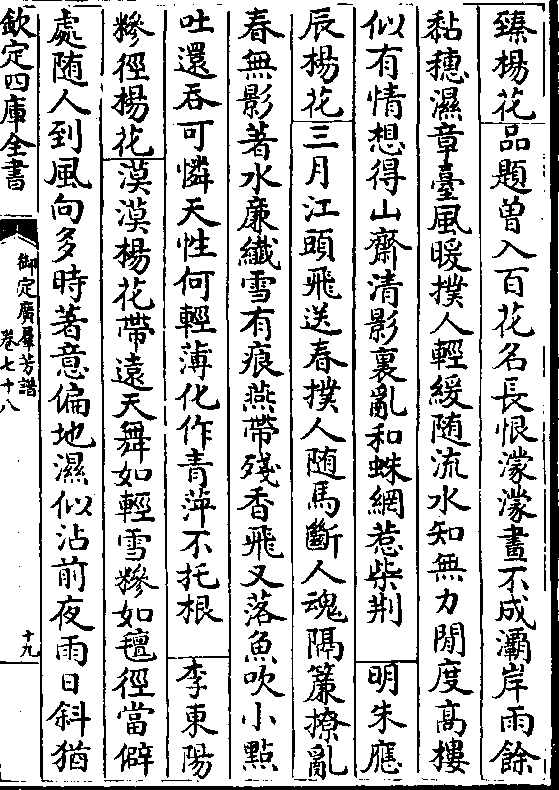 臻楊花品題曽入百花名長恨濛濛畫不成灞岸雨餘
黏穗濕章臺風暖撲人輕緩随流水知無力閒度髙樓
似有情想得山齋清影裏亂和蛛網惹柴荆明朱應
辰楊花三月江頭飛送春撲人随馬斷人魂隔簾撩亂
春無影著水亷纎雪有痕燕帶殘香飛又落魚吹小點
吐還吞可憐天性何輕薄化作青萍不托根李東陽
糝徑楊花漠漠楊花帶遠天舞如輕雪糝如氊徑當僻
處随人到風向多時著意偏地濕似沾前夜雨日斜猶
欽定四庫全書
御定廣羣芳譜
卷七十八
十九